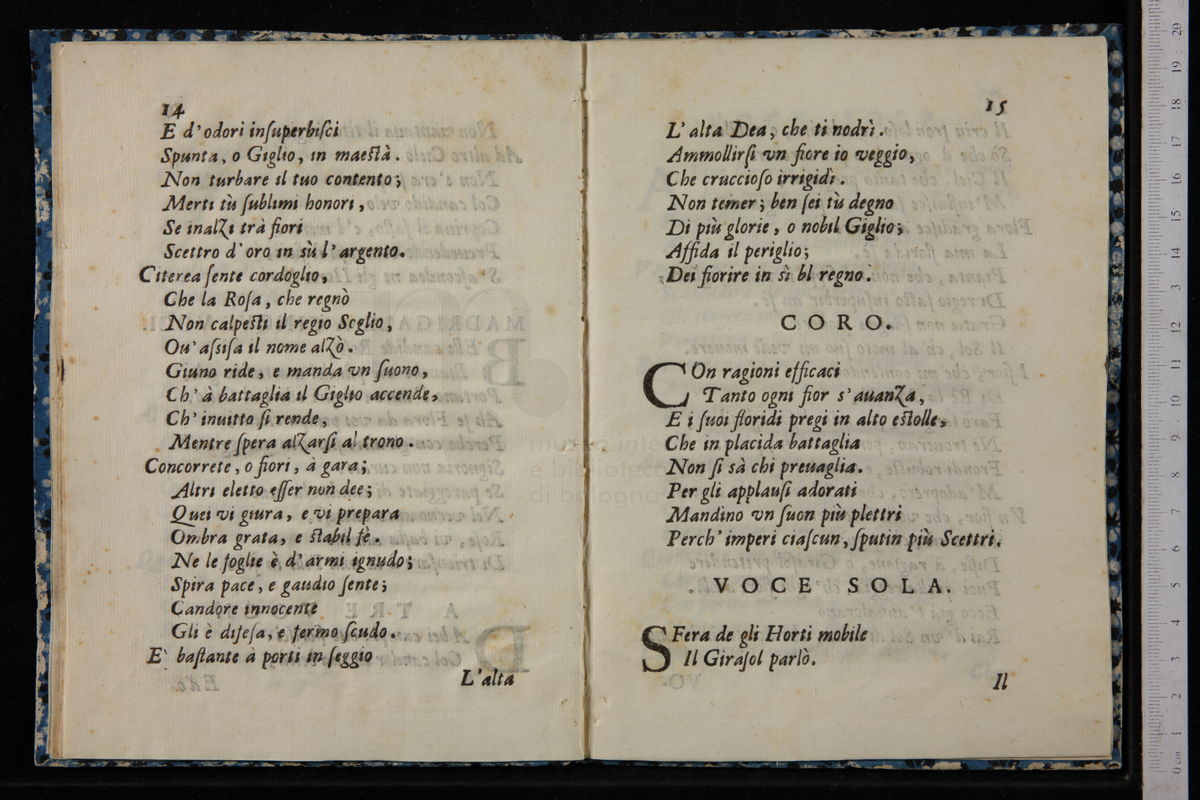 14
E d'odori inſuperbiſci
Spunta, o Giglio, in maeſtà.
Non turbare il tuo contento;
Merti tù ſublimi honori,
Se inalzi trà fiori
Scettro d'oro in sù l'argento.
Citerea ſente cordoglio,
Che la Roſa, che regnò
Non calpeſti il regio Soglio,
Ou' aſsiſa il nome alzò.
Giuno ride, e manda vn ſuono,
Ch' à battaglia il Giglio accende,
Ch' inuitto ſi rende,
Mentre ſpera alzarſi al trono.
Concorrete, o fiori, à gara;
Altri eletto eſſer non dee;
Quei vi giura, e vi prepara
Ombra grata, e ſtabil fè.
Ne le foglie è d'armi ignudo;
Spira pace, e gaudio ſente;
Candore innocente
Gli è difeſa, e fermo ſcudo.
E' baſtante à porti in ſeggio
L'alta
15
L'alta Dea, che ti nodrì.
Ammollirſi vn fiore io veggio,
Che cruccioſo irrigidì.
Non temer; ben ſei tù degno
Di più glorie, o nobil Giglio;
Affida il periglio;
Dei fiorire in sì bl regno.
CORO.
COn ragioni efficaci
Tanto ogni fior s'auanza,
E i ſuoi floridi pregi in alto eſtolle,
Che in placida battaglia
Non ſi sà chi preuaglia.
Per gli applauſi adorati
Mandino vn ſuon più plettri
Perch' imperi ciaſcun, ſputin più Scettri.
VOCE SOLA.
SFera de gli Horti mobile
Il Giraſol parlò.
Il